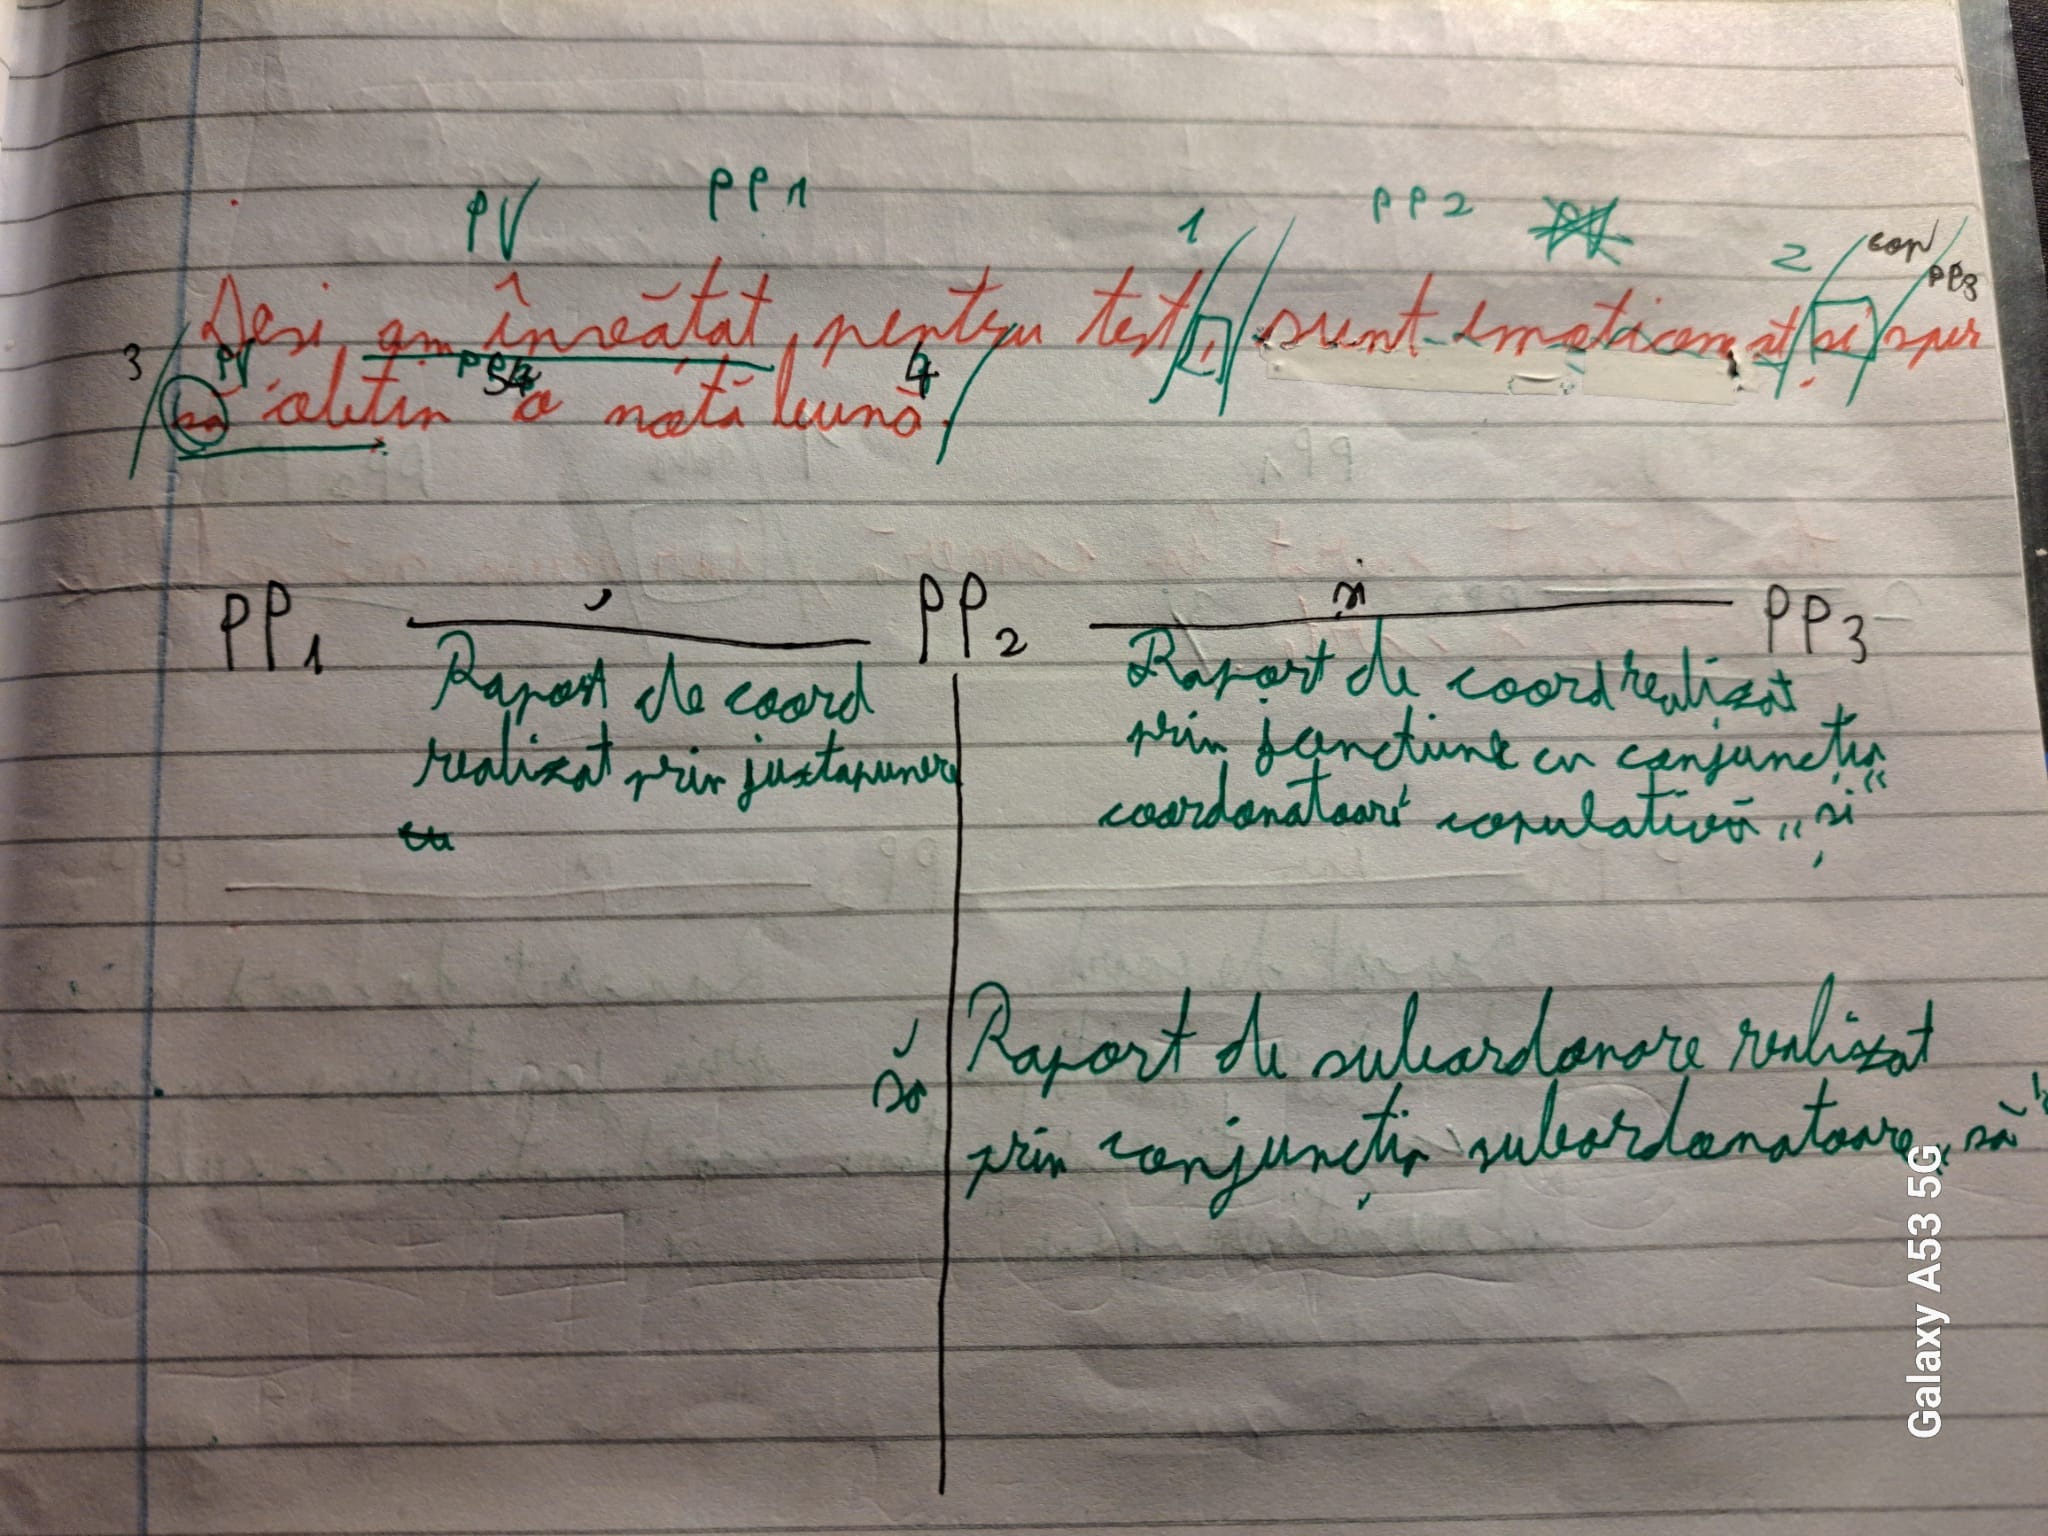 PV PP1 1 PP2 2 con PP3
Deși am învățat pentru test, sunt emoționat și sper
3 PV 4
să obțin o notă bună.
PP1 , PP2 și PP3
Raport de coord
realizat prin juxtapunere
cu
Raport de coord realizat
prin joncțiune cu conjuncția
coordonatoare copulativă „și“
să
Raport de subordonare realizat
prin conjuncția subordonatoare „să“
Galaxy A53 5G